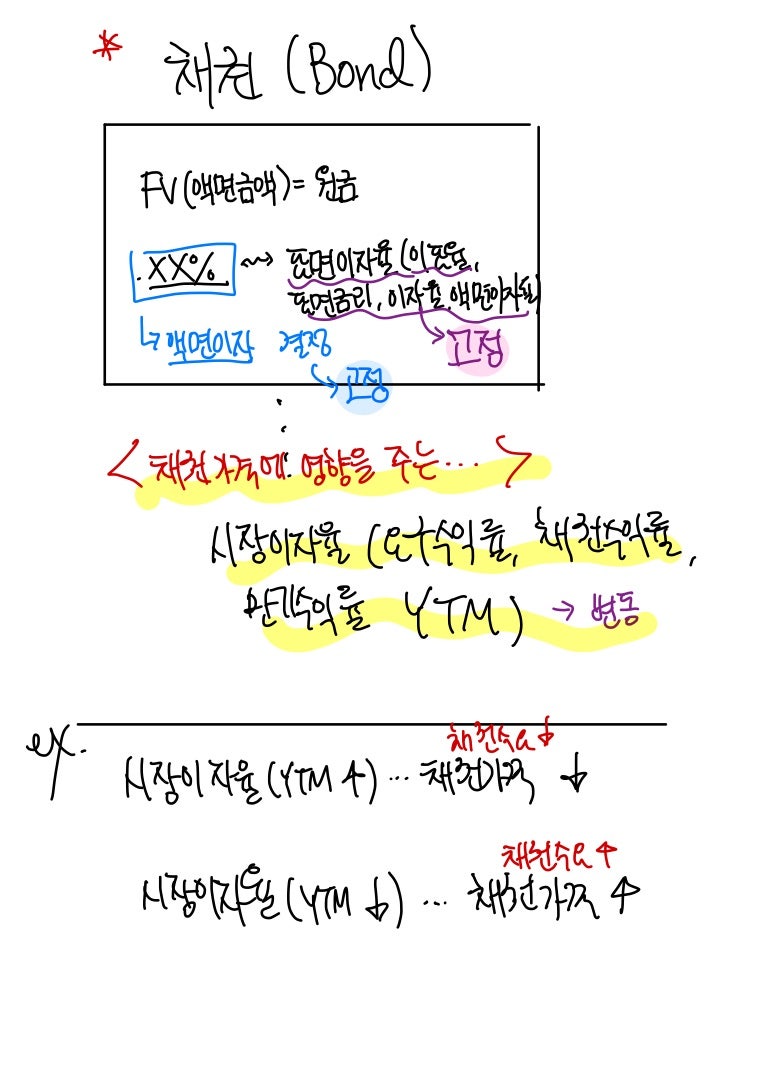 * 채권 (Bond)
FV(액면금액) = 원금
.XX% ⇝ 표면이자율 (이표율,
표면금리, 이자율, 액면이자율)
↳ 액면이자 결정 → 고정
→ 고정
<채권가격에 영향을 주는...>
시장이자율 (요구수익률, 채권수익률,
만기수익률 YTM) → 변동
ex.
채권수요↓
시장이자율(YTM↑) ... 채권가격 ↓
채권수요↑
시장이자율(YTM↓) ... 채권가격 ↑